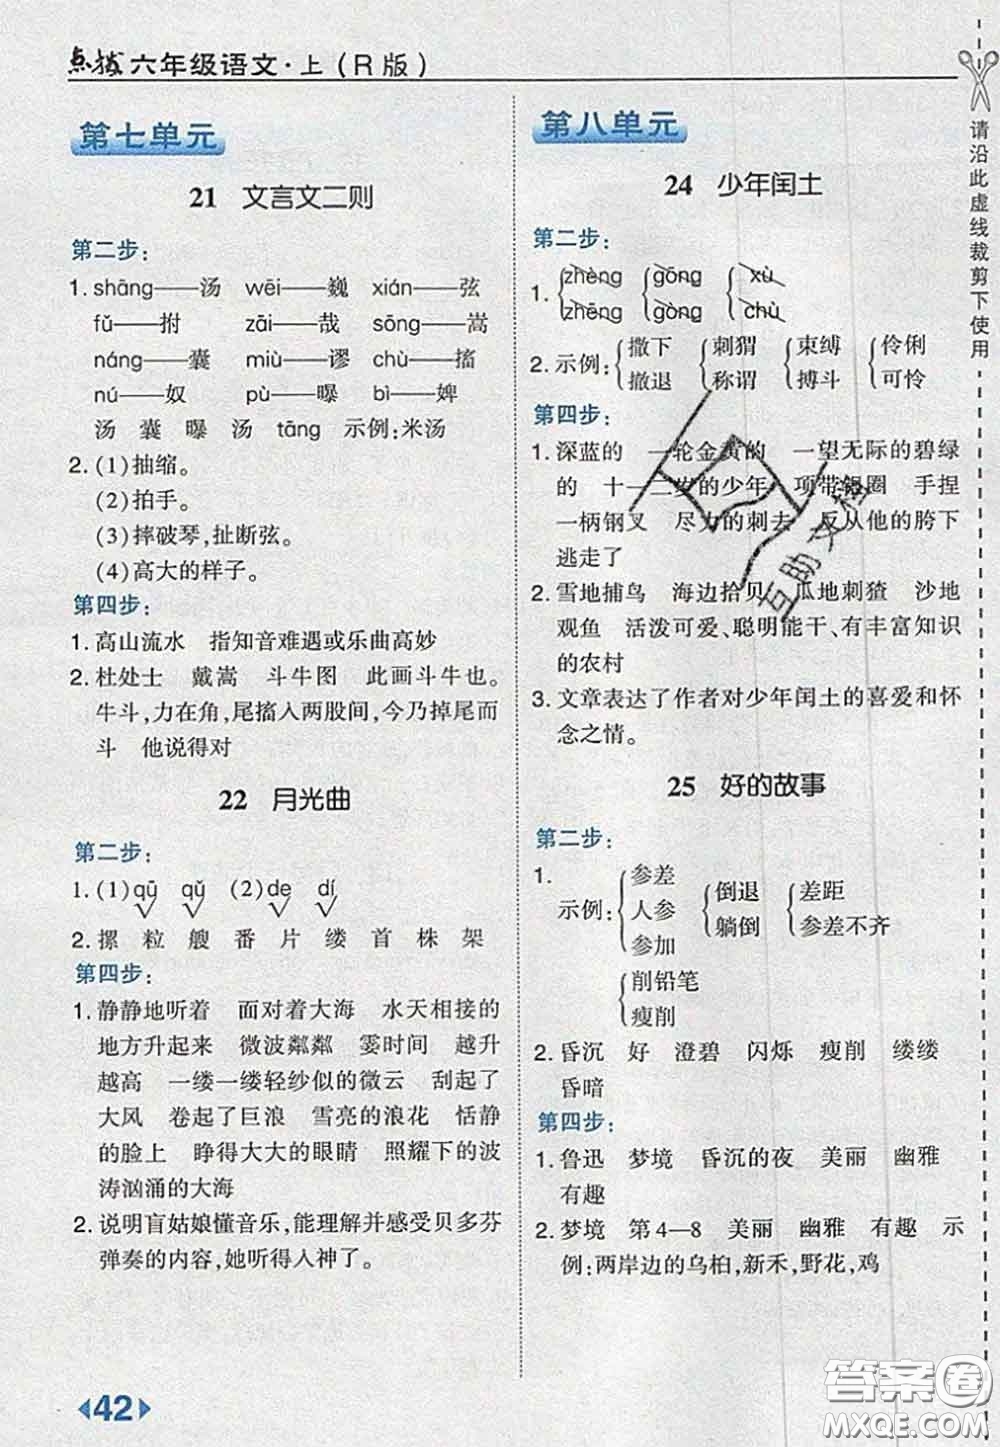 点拨 六年级语文·上(R版)
第七单元
21 文言文二则
第二步:
1. shāng——汤 wēi——巍 xián——弦
fǔ——拊 zāi——哉 sōng——嵩
náng——囊 miù——谬 chù——搐
nú——奴 pù——曝 bì——婢
汤 囊 曝 汤 tāng 示例:米汤
2. (1)抽缩。
(2)拍手。
(3)摔破琴,扯断弦。
(4)高大的样子。
第四步:
1. 高山流水 指知音难遇或乐曲高妙
2. 杜处士 戴嵩 斗牛图 此画斗牛也。
牛斗,力在角,尾搐入两股间,今乃掉尾而
斗 他说得对
22 月光曲
第二步:
1. (1)qū qǔ (2)de dí
2. 摞 粒 艘 番 片 缕 首 株 架
第四步:
1. 静静地听着 面对着大海 水天相接的
地方升起来 微波粼粼 霎时间 越升
越高 一缕一缕轻纱似的微云 刮起了
大风 卷起了巨浪 雪亮的浪花 恬静
的脸上 睁得大大的眼睛 照耀下的波
涛汹涌的大海
2. 说明盲姑娘懂音乐,能理解并感受贝多芬
弹奏的内容,她听得入神了。
42
第八单元
24 少年闰土
第二步:
1. zhèng gōng xù
zhēng gòng chù
2. 示例: 撒下 刺猬 束缚 伶俐
撤退 称谓 搏斗 可怜
第四步:
1. 深蓝的 一轮金黄的 一望无际的碧绿
的 十一二岁的少年 项带银圈 手捏
一柄钢叉 尽力的刺去 反从他的胯下
逃走了
2. 雪地捕鸟 海边拾贝 瓜地刺猹 沙地
观鱼 活泼可爱、聪明能干、有丰富知识
的农村
3. 文章表达了作者对少年闰土的喜爱和怀
念之情。
25 好的故事
第二步:
1.
示例: 参差 倒退 差距
人参 躺倒 参差不齐
参加
削铅笔
瘦削
2. 昏沉 好 澄碧 闪烁 瘦削 缕缕
昏暗
第四步:
1. 鲁迅 梦境 昏沉的夜 美丽 幽雅
有趣
2. 梦境 第4—8 美丽 幽雅 有趣 示
例:两岸边的乌桕,新禾,野花,鸡
请沿此虚线裁剪下使用
互助文档
答案圈
MXQE.COM